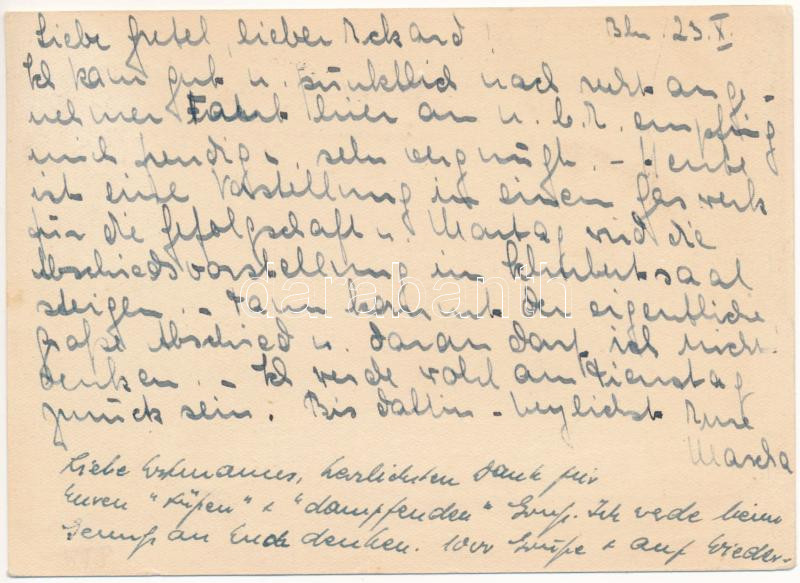 Liebe Gretel, lieber Eckard! Bln. 23. X.
Ich kam gut u. pünktlich nach recht ange-
nehmer Fahrt hier an u. b. R. empfing
mich freudig u. sehr vergnügt. – Heute
ist eine Vorstellung in einem Gaswerk
für die Gefolgschaft u. Montag wird die
Abschiedsvorstellung im Schubertsaal
steigen. – Dann kommt der eigentliche
große Abschied u. daran darf ich nicht
denken. – Ich werde wohl am Dienstag
zurück sein. Bis dahin – herzlichst Eure
Mascha
Liebe, herzlichsten Dank für
Euren "süßen" + "dampfenden" Gruß. Ich werde beim
Genuß an Euch denken. 1000 Grüße + auf Wieder-
darabanth